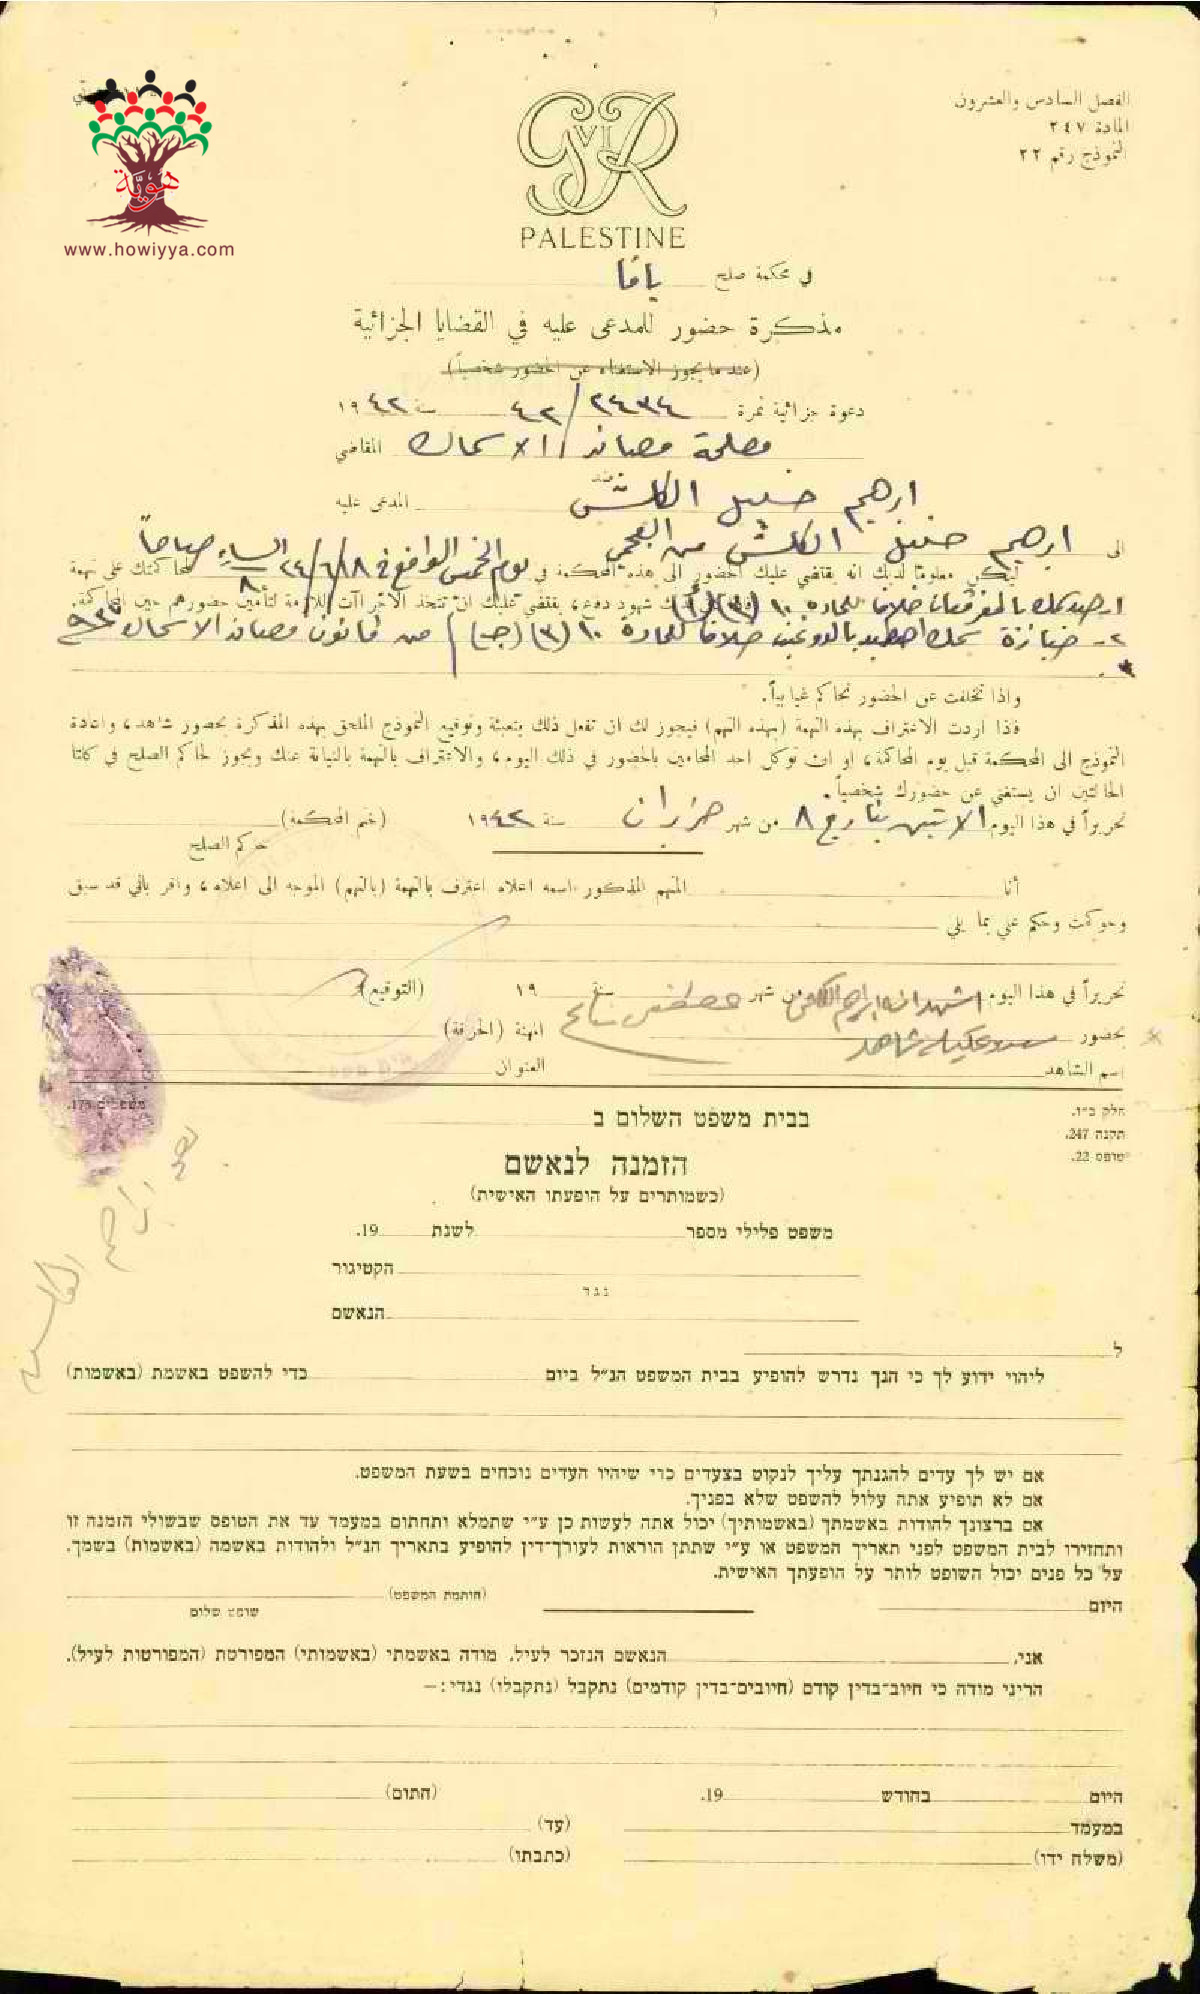 الفصل السادس والعشرون
المادة ٢٤٧
النموذج رقم ٢٢
هويّة
www.howiyya.com
GVIR
PALESTINE
في محكمة صلح يافا
مذكرة حضور للمدعى عليه في القضايا الجزائية
(عندما يجوز الاستغناء عن الحضور شخصياً)
دعوة جزائية نمرة ٢٤٣٤/٤٢ سنة ١٩٤٢
مصلحة مصائد الاسماك المقاضي
ضد
ابرهيم خليل الكلش المدعى عليه
الى ابرهيم خليل الكلش من العجمي
ليكن معلوما لديك انه يقتضي عليك الحضور الى هذه المحكمة في يوم الخميس الواقع في ١٨/٦/٤٢ الساعة ٨ صباحاً لمحاكمتك على تهمة
١- صيد سمك بالمفرقعات خلافا للمادة ١٠ (٣) شهود دفع، يقتضي عليك ان تتخذ الاجراآت اللازمة لتأمين حضورهم حين المحاكمة.
٢- حيازة سمك اصطيد خلافا للمادة ١٠ (٣) (ج) من قانون مصائد الاسماك ٩٣٧
واذا تخلفت عن الحضور تحاكم غيابياً.
فاذا اردت الاعتراف بهذه التهمة (بهذه التهم) فيجوز لك ان تفعل ذلك بتعبئة وتوقيع النموذج الملحق بهذه المذكرة بحضور شاهد، واعادة
النموذج الى المحكمة قبل يوم المحاكمة، او ان توكل احد المحامين بالحضور في ذلك اليوم، والاعتراف بالتهمة بالنيابة عنك ويجوز لحاكم الصلح في كلتا
الحالتين ان يستغني عن حضورك شخصياً.
تحريراً في هذا اليوم الاثنين بتاريخ ٨ من شهر حزيران سنة ١٩٤٢ (ختم المحكمة)
حاكم الصلح
أنا المتهم المذكور اسمه اعلاه اعترف بالتهمة (بالتهم) الموجه الى اعلاه، واقر باني قد سبق
وحوكمت وحكم علي بما يلي
تحريراً في هذا اليوم من شهر سنة ١٩ (التوقيع)
بحضور المهنة (الحرفة)
اسم الشاهد العنوان
משפטים 175.
חלק כ״ו.
תקנה 247.
טופס 22.
בבית משפט השלום ב
הזמנה לנאשם
(כשמותרים על הופעתו האישית)
משפט פלילי מספר לשנת 19.
הקטיגור
נגד
הנאשם
ל
ליהוי ידוע לך כי הנך נדרש להופיע בבית המשפט הנ״ל ביום כדי להשפט באשמת (באשמות)
אם יש לך עדים להגנתך עליך לנקוט בצעדים כדי שיהיו העדים נוכחים בשעת המשפט.
אם לא תופיע אתה עלול להשפט שלא בפניך.
אם ברצונך להודות באשמתך (באשמותיך) יכול אתה לעשות כן ע״י שתמלא ותחתום במעמד עד את הטופס שבשולי הזמנה זו
ותחזירו לבית המשפט לפני תאריך המשפט או ע״י שתתן הוראות לעורך־דין להופיע בתאריך הנ״ל ולהודות באשמה (באשמות) בשמך.
על כל פנים יכול השופט לותר על הופעתך האישית.
היום (חותמת המשפט)
שופט שלום
אני, הנאשם הנזכר לעיל, מודה באשמתי (באשמותי) המפורטת (המפורטות לעיל).
הריני מודה כי חיוב־בדין קודם (חיובים־בדין קודמים) נתקבל (נתקבלו) נגדי:—
היום בחודש 19. (חתום)
במעמד (עד)
(משלח ידו) (כתבתו)